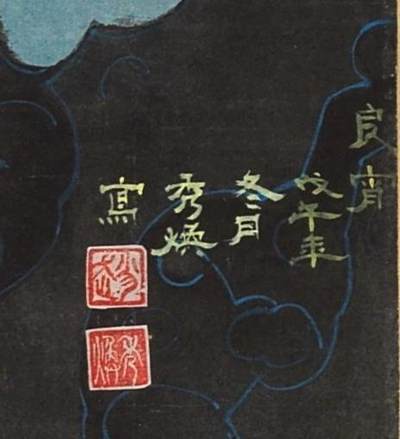 良宵
戊午年
冬月
秀煥
寫
秀煥